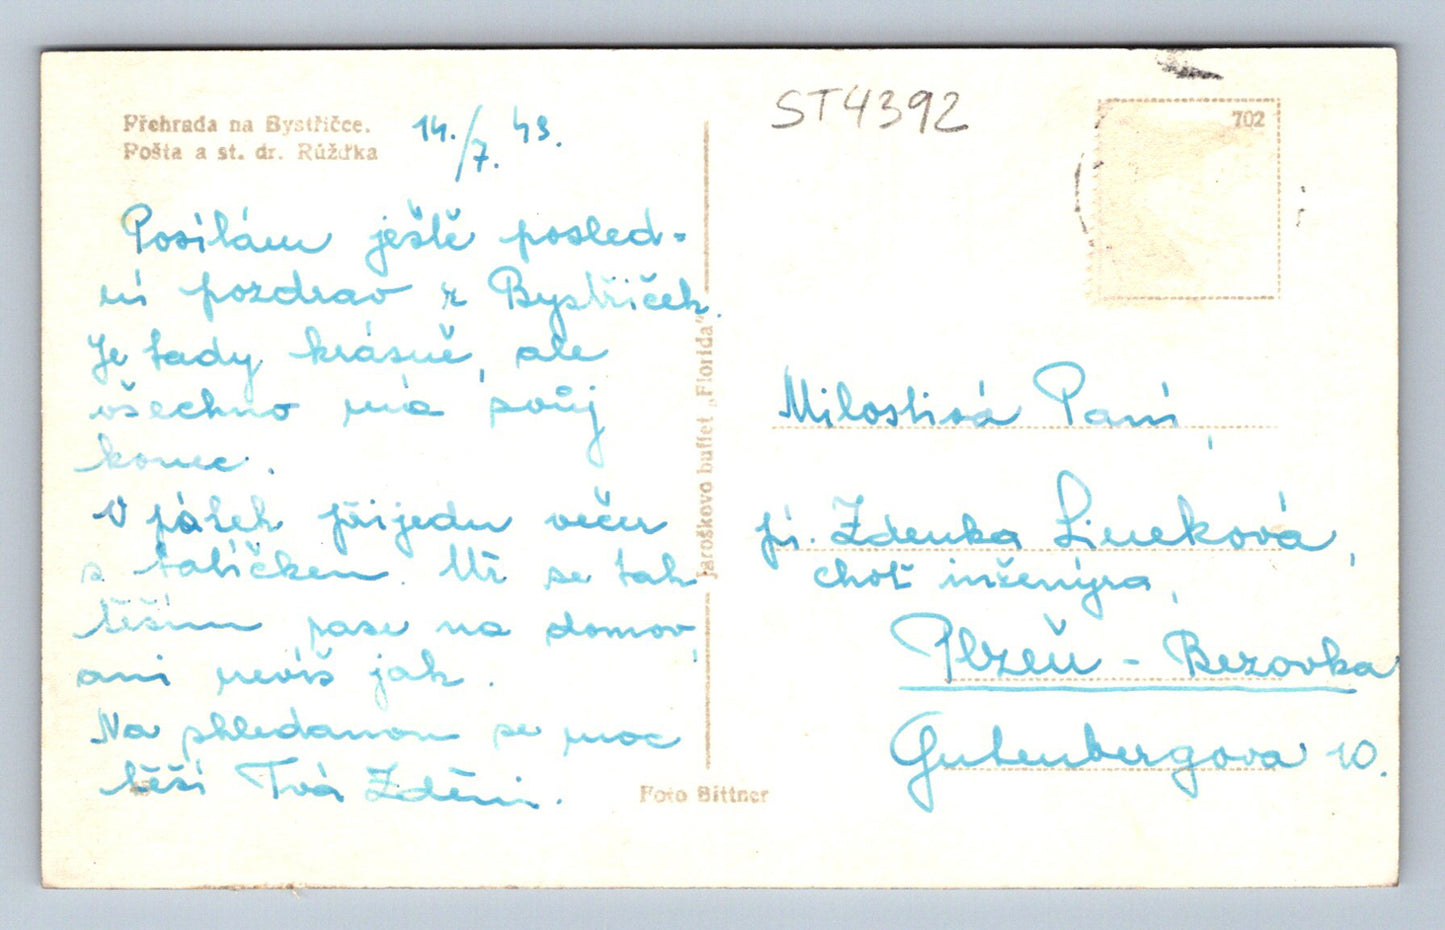 Přehrada na Bystřičce.
Pošta a st. dr. Růžďka
14./7. 43.
Posílám ještě posled-
ní pozdrav z Bystřiček.
Je tady krásně, ale
všechno má svůj
konec.
V pátek přijedu večer
s tatíčkem. Už se tak
těším zase na domov,
ani nevíš jak.
Na shledanou se moc
těší Tvá Zdeni.
Jaroškovo buffet „Florida"
Foto Bittner
ST4392
702
Milostivá Paní,
pí. Zdenka Lineková,
choť inženýra,
Plzeň - Bezovka
Gutenbergova 10.